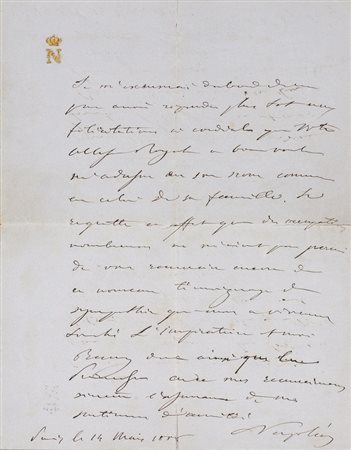 N
Je m'excuserai d'abord de ne
pas avoir répondu plus tôt aux
félicitations si cordiales que Votre
Altesse Royale a bien voulu
m'adresser en son nom comme
en celui de sa famille. Je
regrette en effet que des occupations
nombreuses ne m'aient pas permis
de vous remercier encore de
ce nouveau témoignage de
sympathie qui nous a vivement
touché l'Impératrice et moi
Recevez donc ainsi que la
Princesse avec mes remerciements
sincères l'assurance de mes
sentiments d'amitié
Paris le 14 Mars 1856
Napoléon